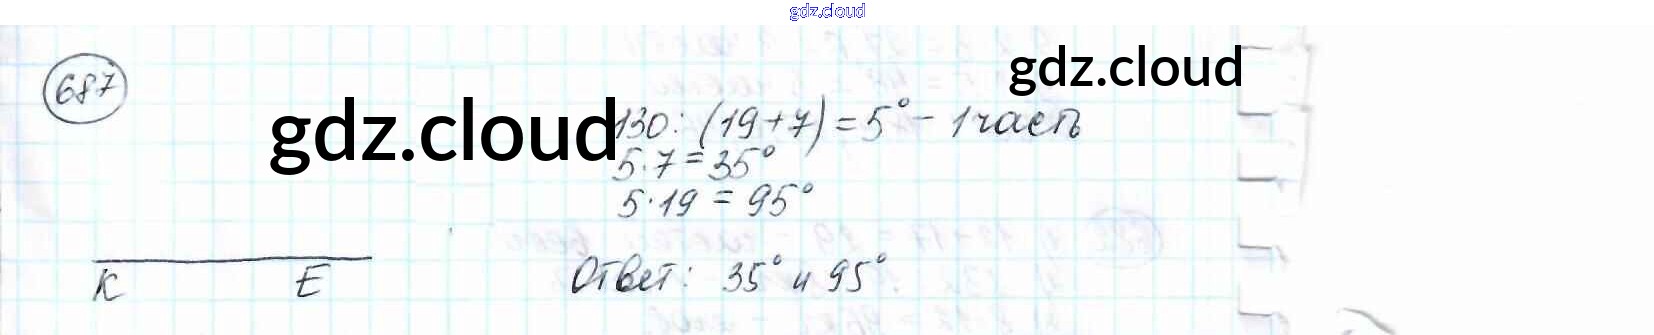 gdz.cloud
687
gdz.cloud
gdz.cloud
130 : (19 + 7) = 5° - 1 часть
5 · 7 = 35°
5 · 19 = 95°
K E
Ответ: 35° и 95°